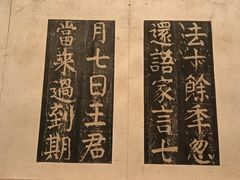 去十餘秊忽
還語家言七
月七日王君
當來過到期